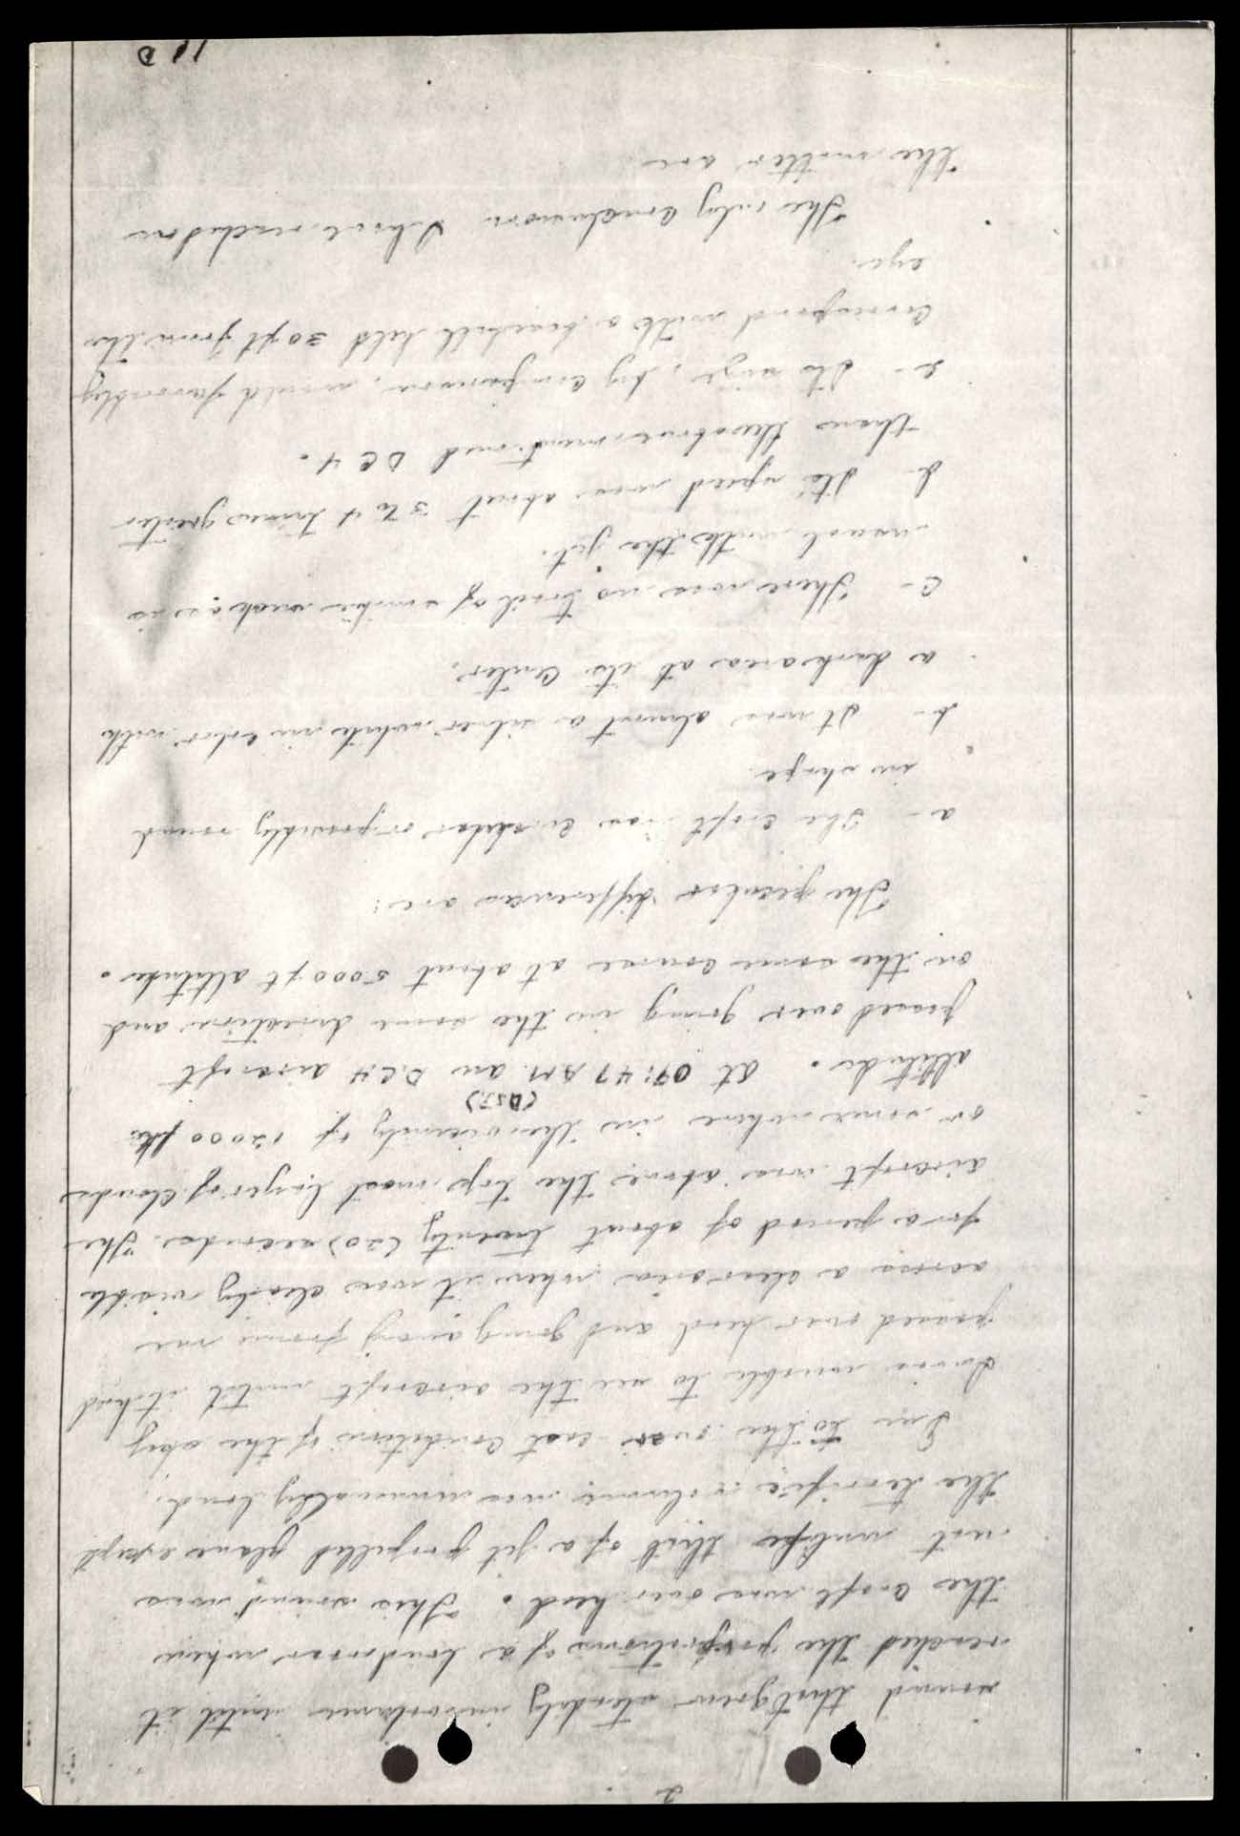 2
sound that grew steadily in volume until it
reached the proportions of a loud roar when
the craft was over head. This sound was
not unlike that of a jet propelled plane except
the terrific volume was unusually loud.
Due to the over cast conditions of the sky
I was unable to see the aircraft until it had
passed over head and going away from me
across a clear area when it was clearly visible
for a period of about twenty (20) seconds. The
aircraft was above the top most layer of clouds
or some where in the vicinity of 12000 ft.
(DST)
altitude. At 07:47 AM an D.C.4 aircraft
passed over going in the same direction and
on the same course at about 5000 ft altitude.
The peculiar differences are:
a- The craft was circular or possibly round
in shape
b- It was almost a silver white in color with
a dark area at its center.
c- There was no trail of smoke such as is
usual with the jet.
d- Its speed was about 3 to 4 times greater
than the above mentioned DC 4.
e- Its size, by comparison, would possibly
correspond with a baseball held 30 ft from the
eye.
The only conclusion I have reached on
the matter are
11 D